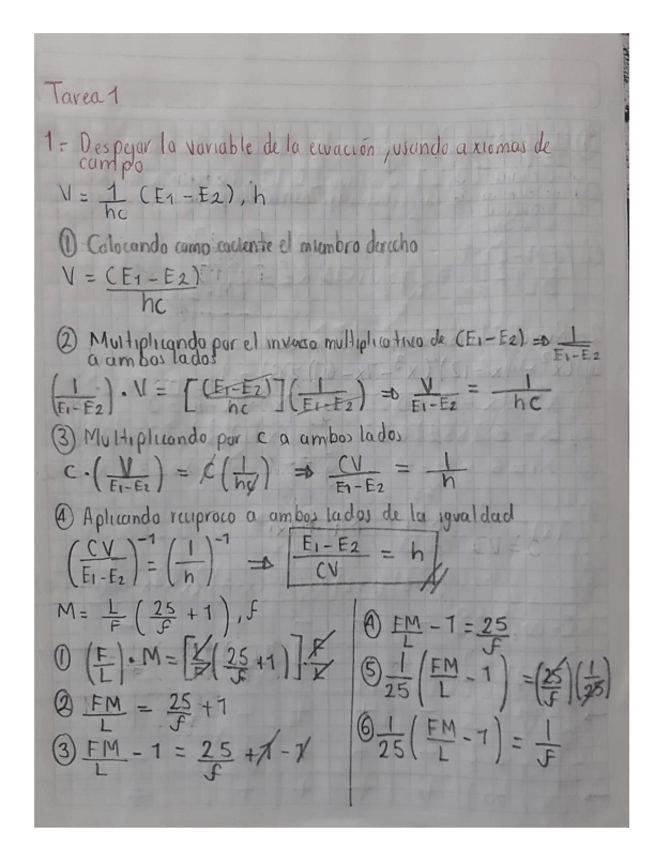 Tarea 1
1.- Despejar la variable de la ecuación, usando axiomas de
campo
V = 1/hc (E1 - E2), h
① Colocando como cociente el miembro derecho
V = (E1 - E2)/hc
② Multiplicando por el inverso multiplicativo de (E1 - E2) ⇒ 1/E1-E2
a ambos lados
(1/E1-E2) · V = [(E1-E2)/hc](1/E1-E2) ⇒ V/E1-E2 = 1/hc
③ Multiplicando por c a ambos lados
c · (V/E1-E2) = c(1/hc) ⇒ CV/E1-E2 = 1/h
④ Aplicando reciproco a ambos lados de la igualdad
(CV/E1-E2)^-1 = (1/h)^-1 ⇒ E1-E2/CV = h
M = L/F (25/f + 1), f
① (F/L) · M = [L/F (25/f + 1)] · F/L
② FM/L = 25/f + 1
③ FM/L - 1 = 25/f + 1 - 1
④ FM/L - 1 = 25/f
⑤ 1/25 (FM/L - 1) = (25/f)(1/25)
⑥ 1/25 (FM/L - 1) = 1/f